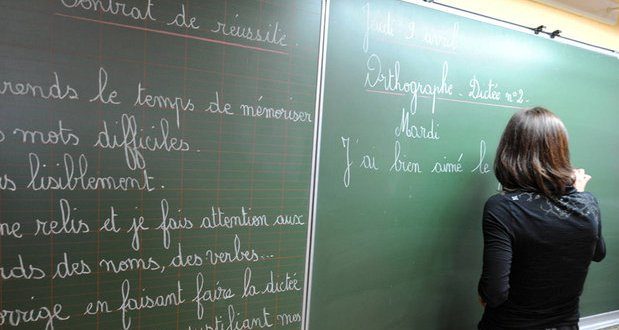 Contrat de réussite.
rends le temps de mémoriser
mots difficiles.
lisiblement.
me relis et je fais attention aux
rds des noms, des verbes...
orrige en faisant faire la dictée
justifiant mes
Jeudi 9 avril
Orthographe - Dictée n°2.
Mardi
J'ai bien aimé le